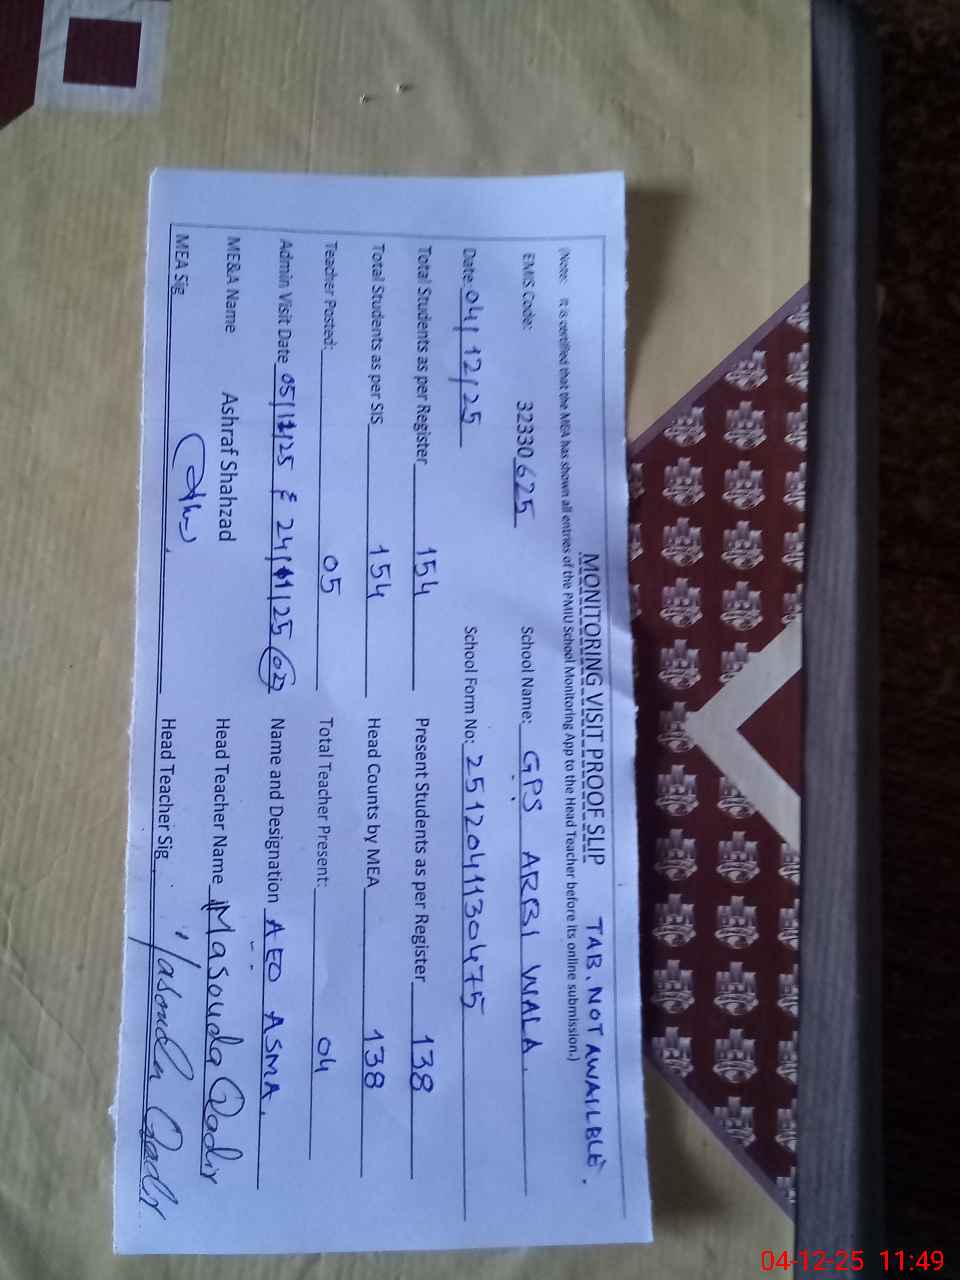 MONITORING VISIT PROOF SLIP TAB. NOT AWAILBLE.
(Note: It is certified that the MEA has shown all entries of the PMIU School Monitoring App to the Head Teacher before its online submission.)
EMIS Code: 32330625 School Name: GPS ARBI WALA.
Date: 04/12/25 School Form No: 251204113 0475
Total Students as per Register 154 Present Students as per Register 138
Total Students as per SIS 154 Head Counts by MEA 138
Teacher Posted: 05 Total Teacher Present: 04
Admin Visit Date 05/11/25 & 24/11/25 (02) Name and Designation AEO ASMA.
ME&A Name Ashraf Shahzad Head Teacher Name Masouda Qadir
MEA Sig Head Teacher Sig Masouda Qadir
04-12-25 11:49